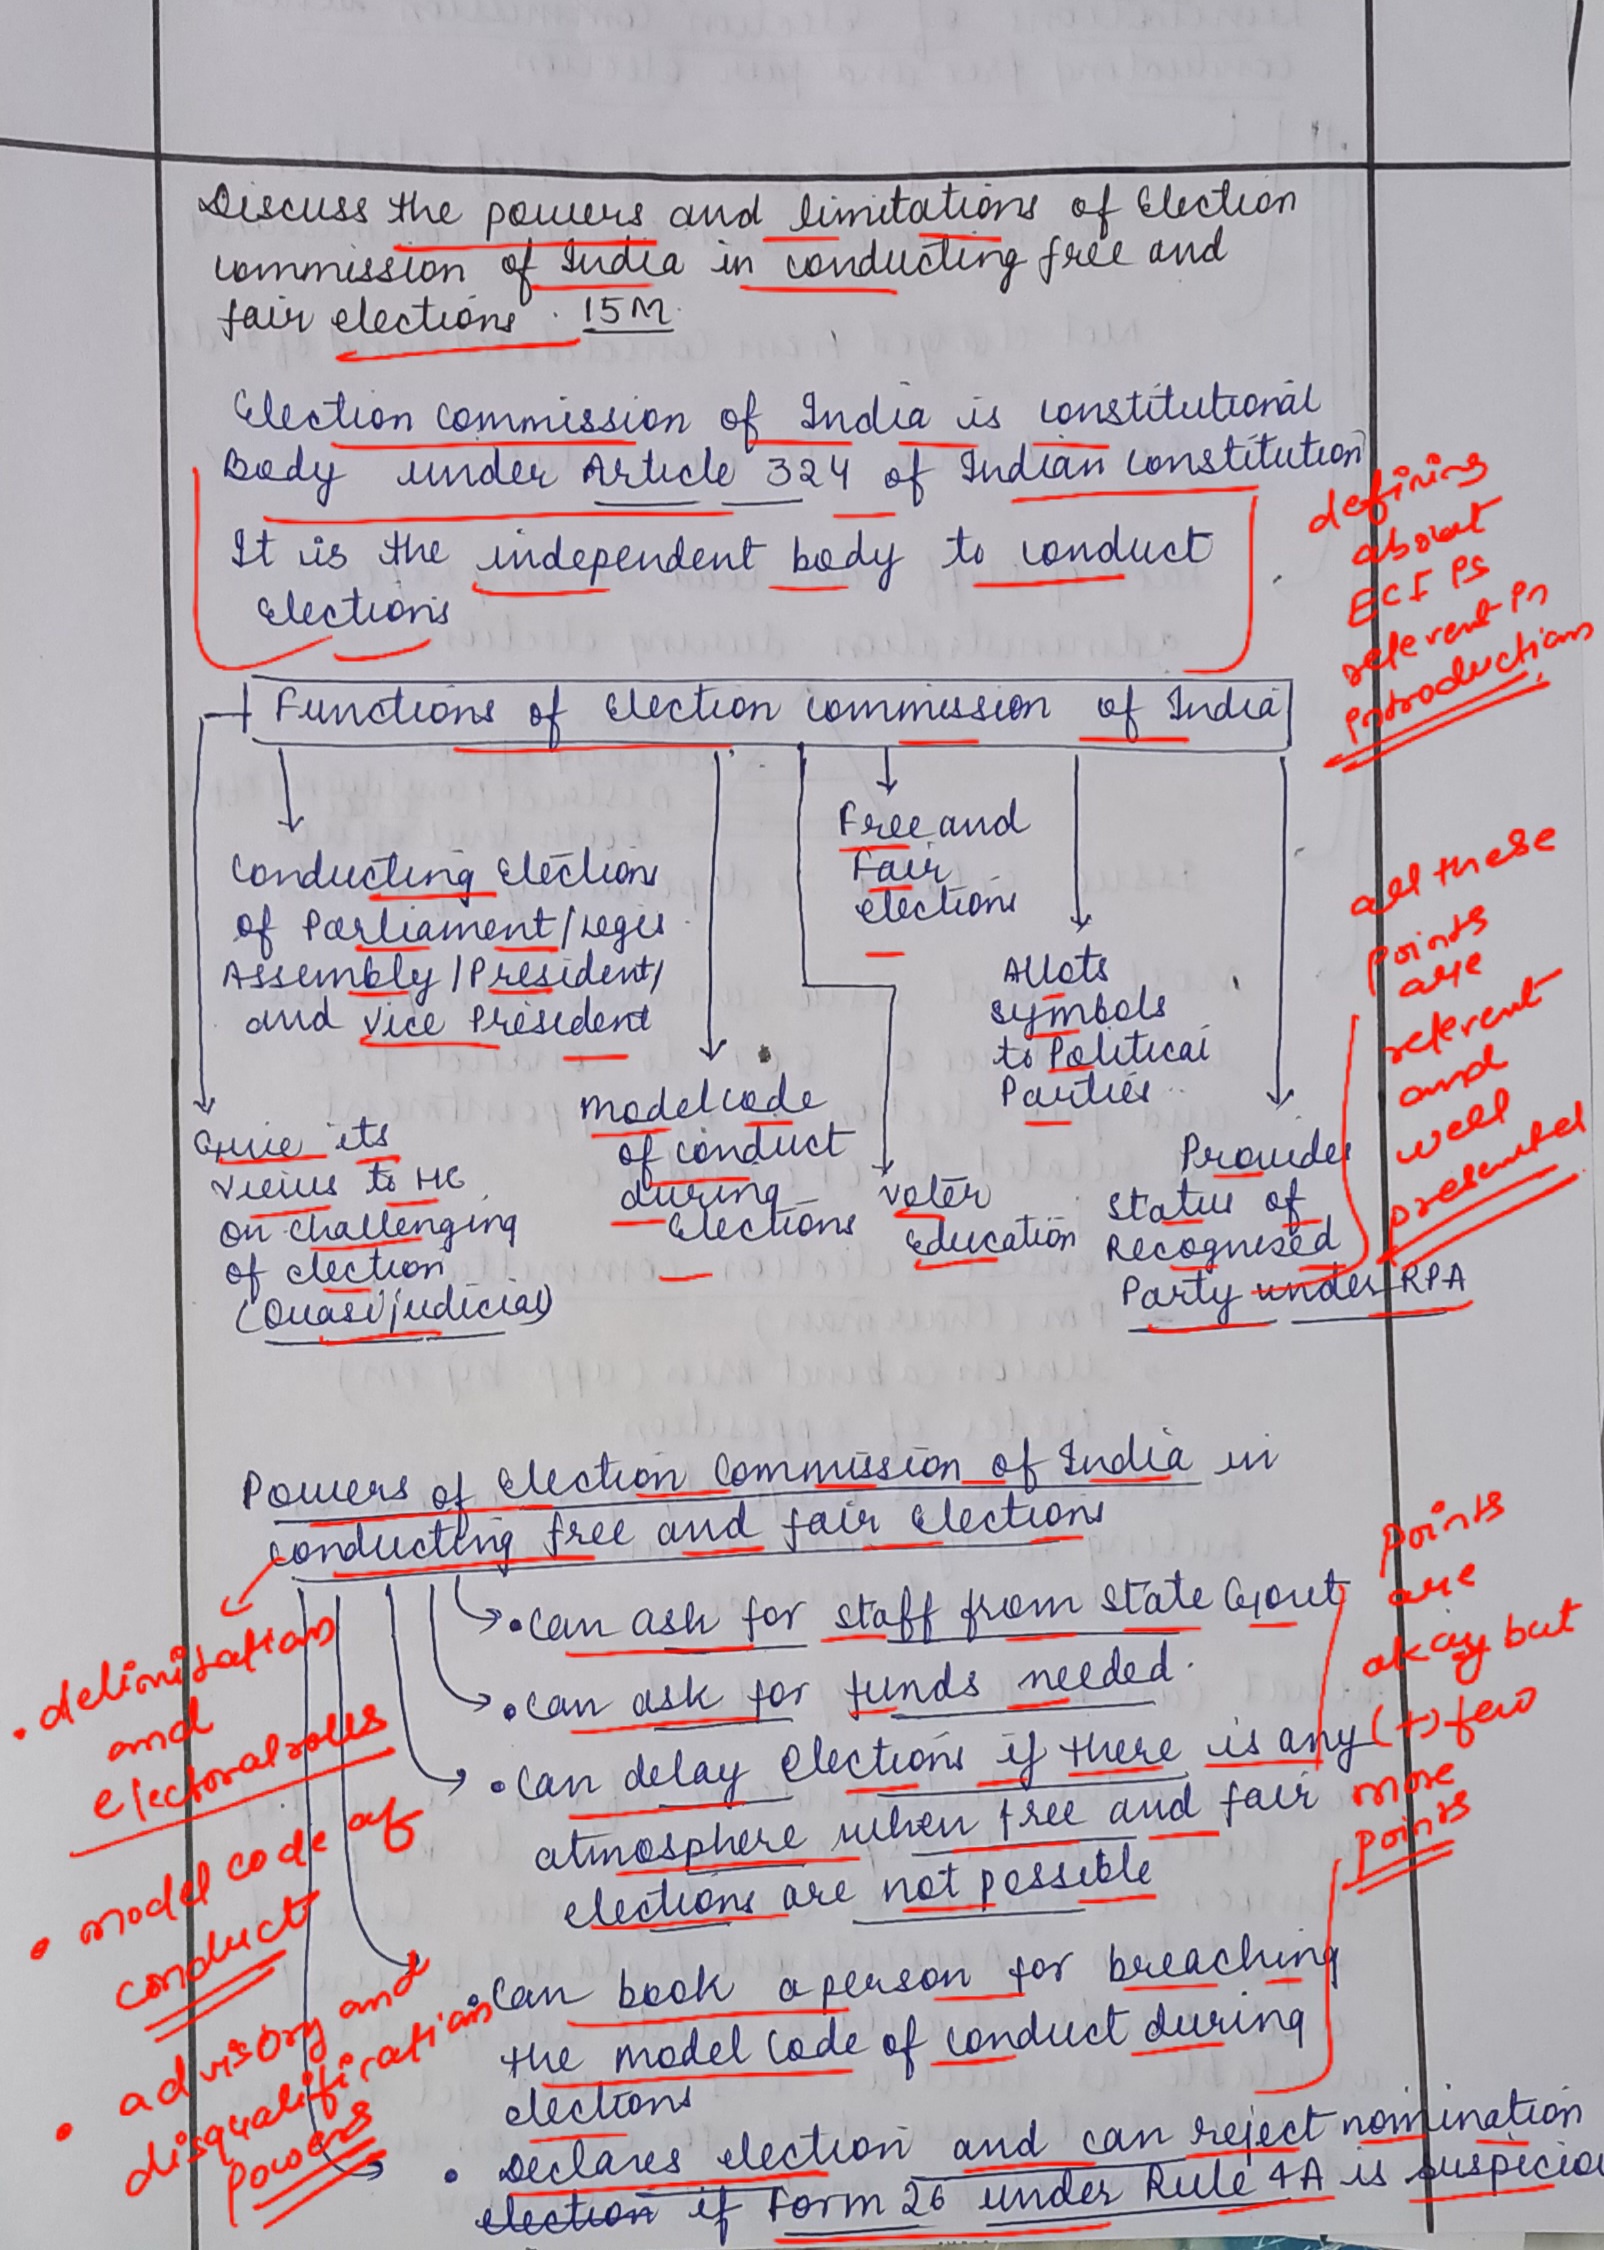 Discuss the powers and limitations of Election
commission of India in conducting free and
fair elections. 15M
Election commission of India is constitutional
Body under Article 324 of Indian constitution
It is the independent body to conduct
Elections
defining
about
ECI Ps
relevent Pn
Pntroductions
Functions of Election commission of India
Conducting Election
of Parliament/Legis
Assembly/President/
and Vice President
Free and
Fair
elections
Allots
symbols
to Political
Parties
Give its
views to HC
on challenging
of election
(Quasi judicial)
Model code
of conduct
during
Elections
Voter
Education
Provides
Status of
Recognised
Party under RPA
all these
points
are
relevent
and
well
presented
Powers of Election Commission of India in
conducting free and fair Elections
• Can ask for staff from State Govt
• Can ask for funds needed.
• Can delay Elections if there is any
atmosphere when free and fair
elections are not possible
• Can book a person for breaching
the model code of conduct during
elections
• Declares election and can reject nomination
election if Form 26 under Rule 4A is suspicious
Points
are
okay but
(+) few
more
points
• delimitation
and
electoral rolls
• model code of
conduct
• advisory and
disqualification
powers